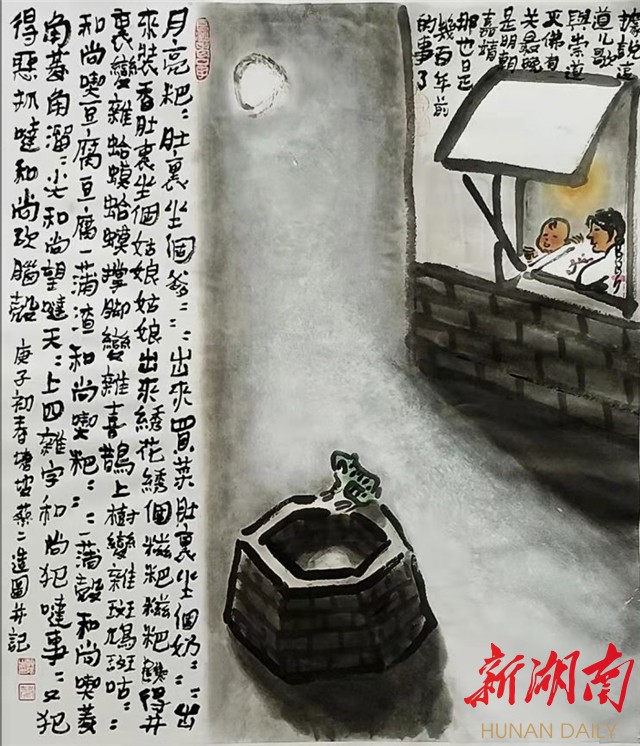 據說這
道儿歌
與崇道
灭佛有
关最晚
是明朝
嘉靖
那也是
幾百年前
的事了
月亮粑〻肚裏坐個爹〻〻出來買菜肚裏坐個奶〻〻出
來裝香肚裏坐個姑娘姑娘出來綉花綉個糍粑糍粑跌得井
裏變雜蛤蟆蛤蟆撑脚變雜喜鵲上樹變雜斑鳩斑咕〻
和尚喫豆腐豆腐一蒲渣和尚喫粑〻〻一蒲殼和尚喫菱
角菱角溜〻尖和尚望噠天〻上四雜字和尚犯噠事〻又犯
得惡抓噠和尚砍腦殼 庚子初春塘坡蔡二造圖并記
新湖南
HUNAN DAILY